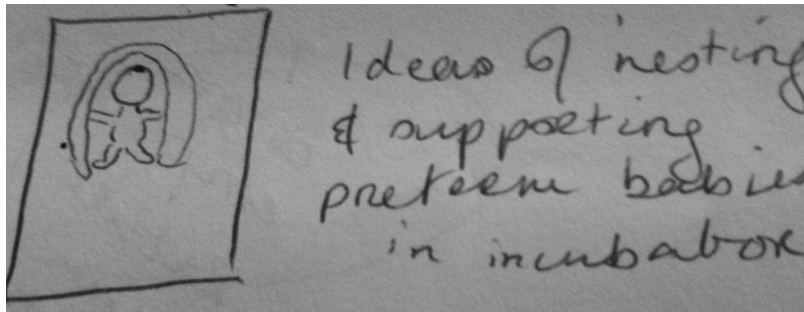 Ideas of nesting
& supporting
preterm babies
in incubator